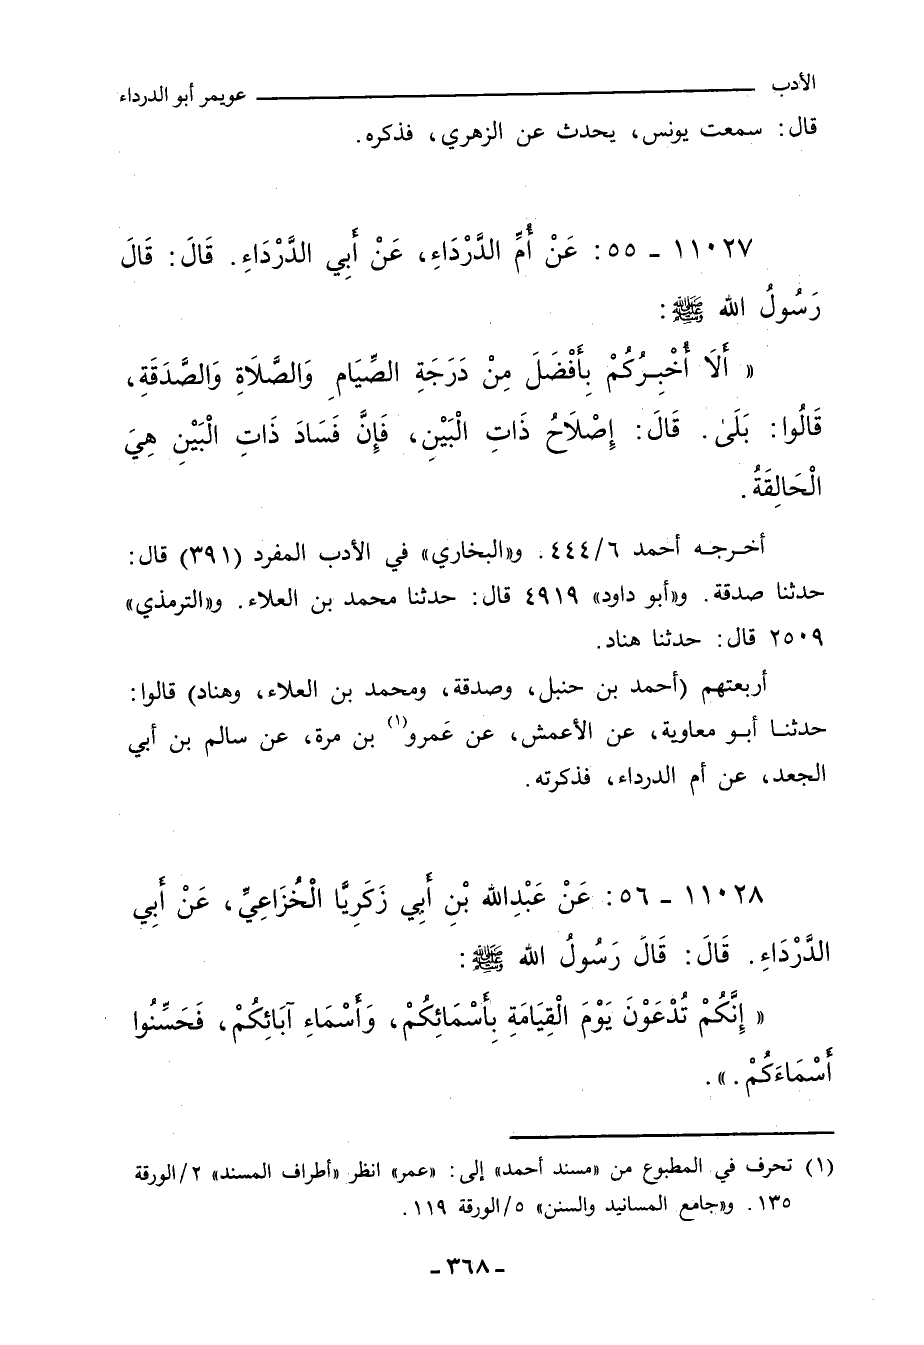 الأدب ــــــــــــــــ عويمر أبو الدرداء
قال: سمعت يونس، يحدث عن الزهري، فذكره.
١١٠٢٧ - ٥٥: عَنْ أُمِّ الدَّرْدَاءِ، عَنْ أَبِي الدَّرْدَاءِ. قَالَ: قَالَ
رَسُولُ الله ﷺ:
« أَلَا أُخْبِرُكُمْ بِأَفْضَلَ مِنْ دَرَجَةِ الصِّيَامِ وَالصَّلَاةِ وَالصَّدَقَةِ،
قَالُوا: بَلَىٰ. قَالَ: إِصْلَاحُ ذَاتِ الْبَيْنِ، فَإِنَّ فَسَادَ ذَاتِ الْبَيْنِ هِيَ
الْحَالِقَةُ.
أخرجه أحمد ٦/ ٤٤٤. و«البخاري» في الأدب المفرد (٣٩١) قال:
حدثنا صدقة. و«أبو داود» ٤٩١٩ قال: حدثنا محمد بن العلاء. و«الترمذي»
٢٥٠٩ قال: حدثنا هناد.
أربعتهم (أحمد بن حنبل، وصدقة، ومحمد بن العلاء، وهناد) قالوا:
حدثنا أبو معاوية، عن الأعمش، عن عَمرو(١) بن مرة، عن سالم بن أبي
الجعد، عن أم الدرداء، فذكرته.
١١٠٢٨ - ٥٦: عَنْ عَبْدِالله بْنِ أَبِي زَكَرِيَّا الْخُزَاعِيِّ، عَنْ أَبِي
الدَّرْدَاءِ. قَالَ: قَالَ رَسُولُ الله ﷺ:
« إِنَّكُمْ تُدْعَوْنَ يَوْمَ الْقِيَامَةِ بِأَسْمَائِكُمْ، وَأَسْمَاءِ آبَائِكُمْ، فَحَسِّنُوا
أَسْمَاءَكُمْ. ».
(١) تحرف في المطبوع من «مسند أحمد» إلى: «عمر» انظر «أطراف المسند» ٢/الورقة
١٣٥. و«جامع المسانيد والسنن» ٥/الورقة ١١٩.
- ٣٦٨ -